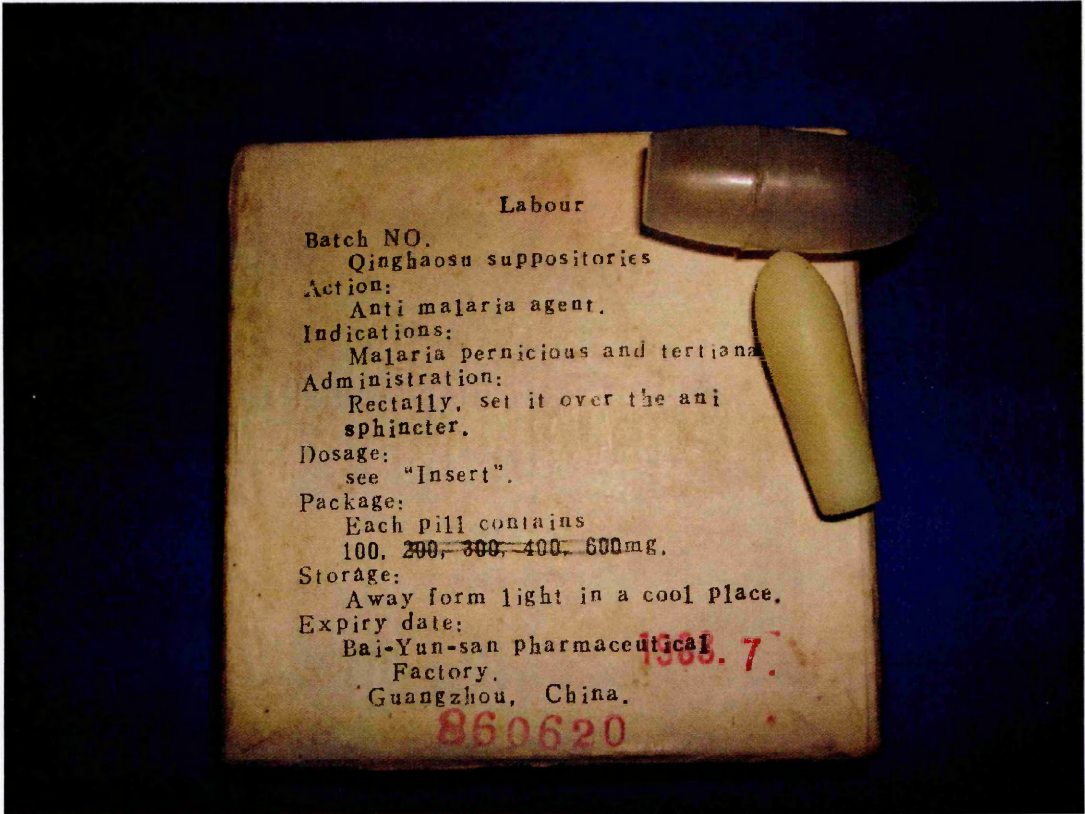 Labour
Batch NO.
Qinghaosu suppositories
Action:
Anti malaria agent.
Indications:
Malaria pernicious and tertiana
Administration:
Rectally, set it over the ani
sphincter.
Dosage:
see "Insert".
Package:
Each pill contains
100, 200, 300, 400, 600mg.
Storage:
Away form light in a cool place.
Expiry date:
Bai-Yun-san pharmaceutical
7.
Factory.
Guangzhou, China.
860620